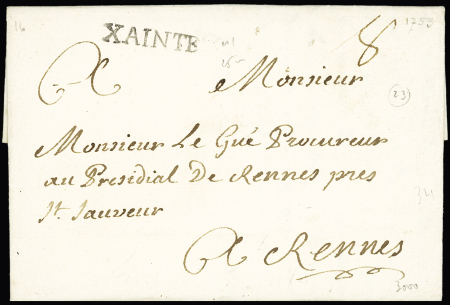 XAINTE
8
A Monsieur
Monsieur Le Gué Procureur
au Presidial De Rennes pres
St. Sauveur
A Rennes
23
3000